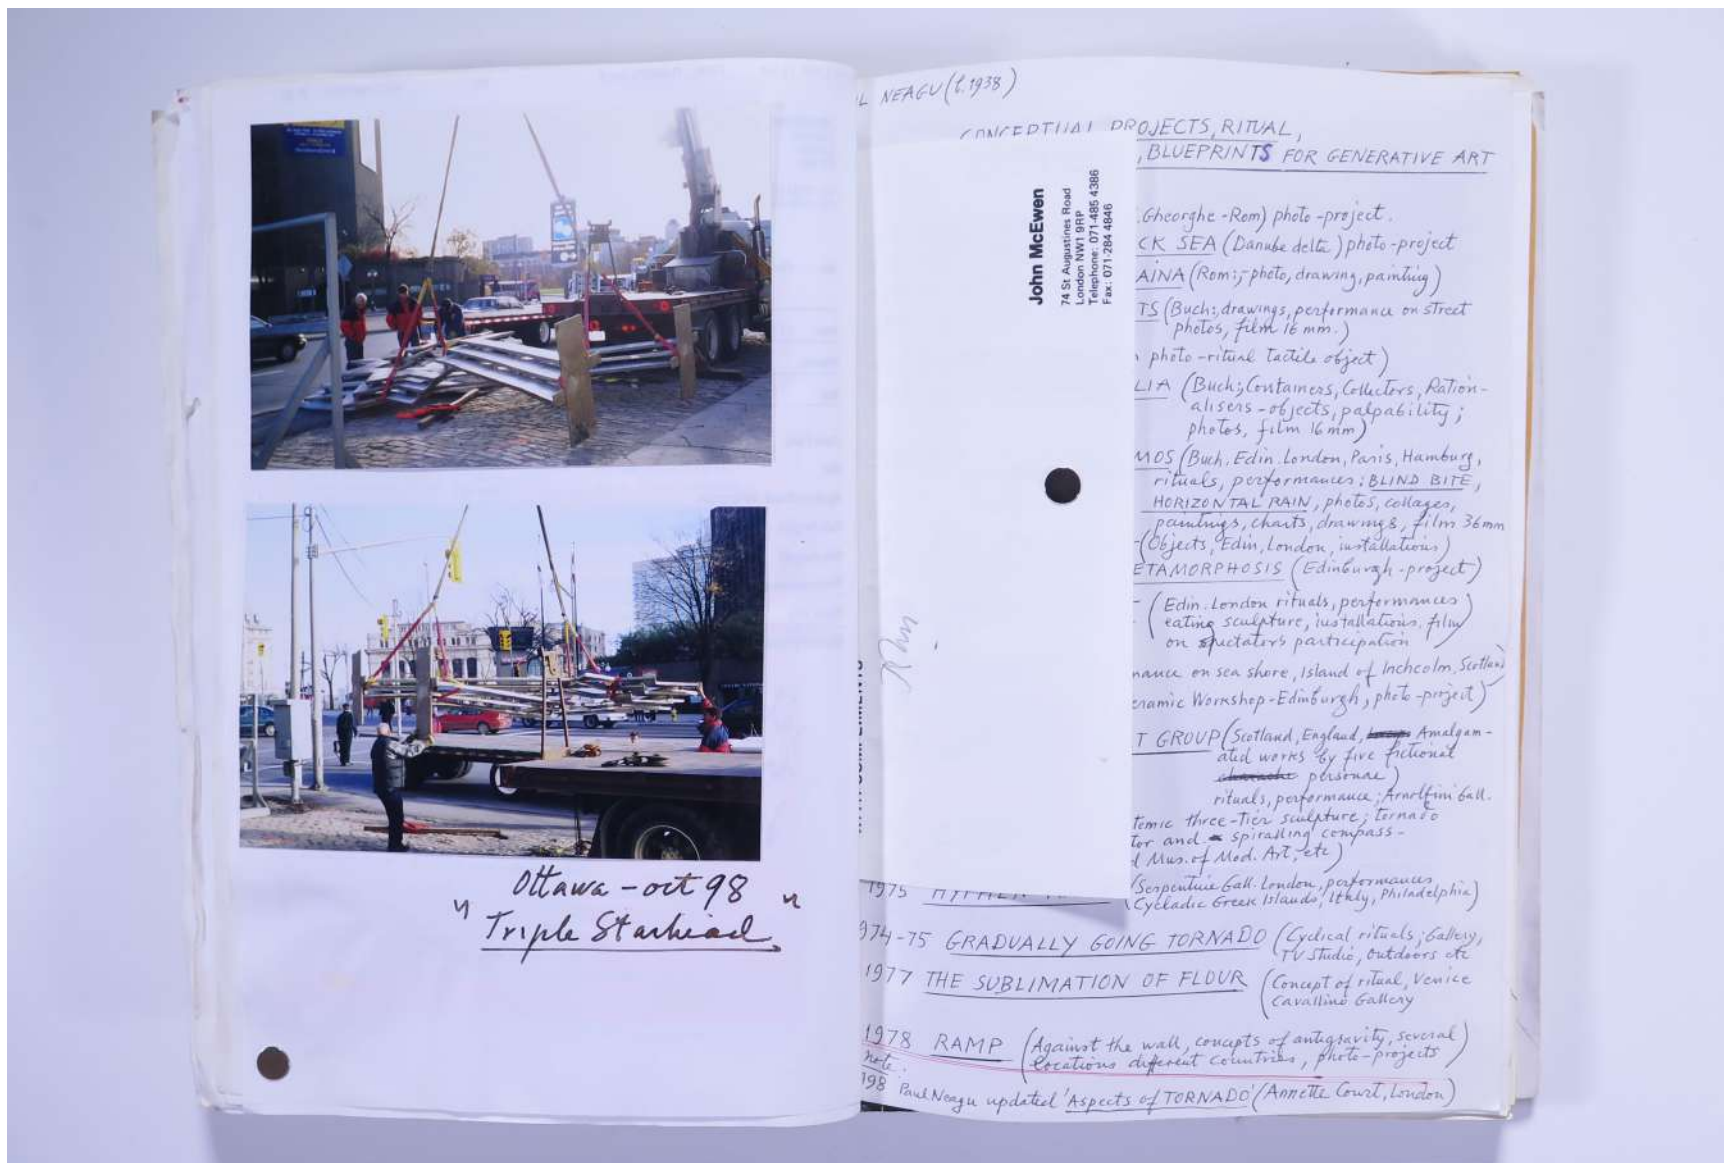 Ottawa - oct 98
" Triple Starhead "
L NEAGU (b.1938)
CONCEPTUAL PROJECTS, RITUAL,
, BLUEPRINTS FOR GENERATIVE ART
John McEwen
74 St Augustines Road
London NW1 9RP
Telephone: 071-485 4386
Fax: 071-284 4846
Gheorghe - Rom) photo - project.
CK SEA (Danube delta) photo - project
AINA (Rom; - photo, drawing, painting)
TS (Buch; drawings, performance on street
photos, film 16 mm.)
photo - ritual tactile object)
LIA (Buch; Containers, Collectors, Ration-
alisers - objects, palpability;
photos, film 16 mm)
MOS (Buch. Edin. London, Paris, Hamburg,
rituals, performances; BLIND BITE,
HORIZONTAL RAIN, photos, collages,
paintings, charts, drawings, film 36mm
(Objects, Edin, London, installations)
ETAMORPHOSIS (Edinburgh - project)
(Edin. London rituals, performances
eating sculpture, installations, film
on spectators participation
mance on sea shore, Island of Inchcolm, Scotland
eramic Workshop - Edinburgh, photo - project)
T GROUP (Scotland, England, Amalgam-
ated works by five fictional
personae)
rituals, performance; Arnolfini Gall.
temic three-tier sculpture; tornado
tor and spiralling compass -
d Mus. of Mod. Art, etc)
1975 HYPHEN (Serpentine Gall. London, performances
Cycladic Greek Islands, Italy, Philadelphia)
974-75 GRADUALLY GOING TORNADO (Cyclical rituals; Gallery,
TV studio, outdoors etc
1977 THE SUBLIMATION OF FLOUR (Concept of ritual, Venice
Cavallino Gallery
1978 RAMP (Against the wall, concepts of antigravity, several
locations different countries, photo - projects)
note:
198 Paul Neagu updated 'Aspects of TORNADO' (Annette Court, London)